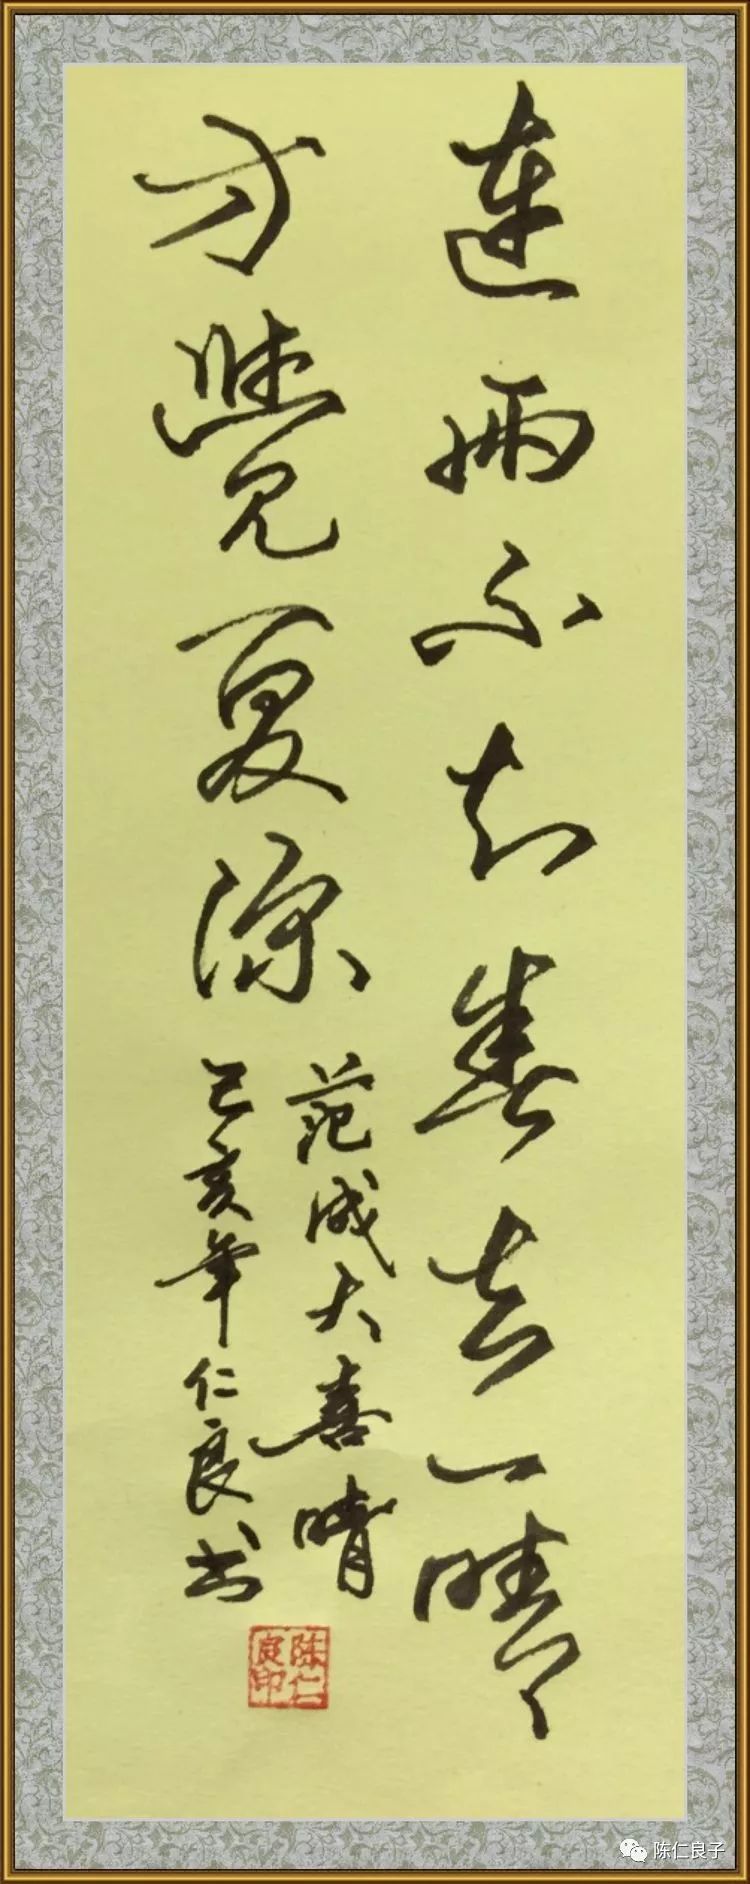 連雨不知春去一晴
方覺夏深
范成大喜晴
己亥年仁良书
陈仁良印
陈仁良子